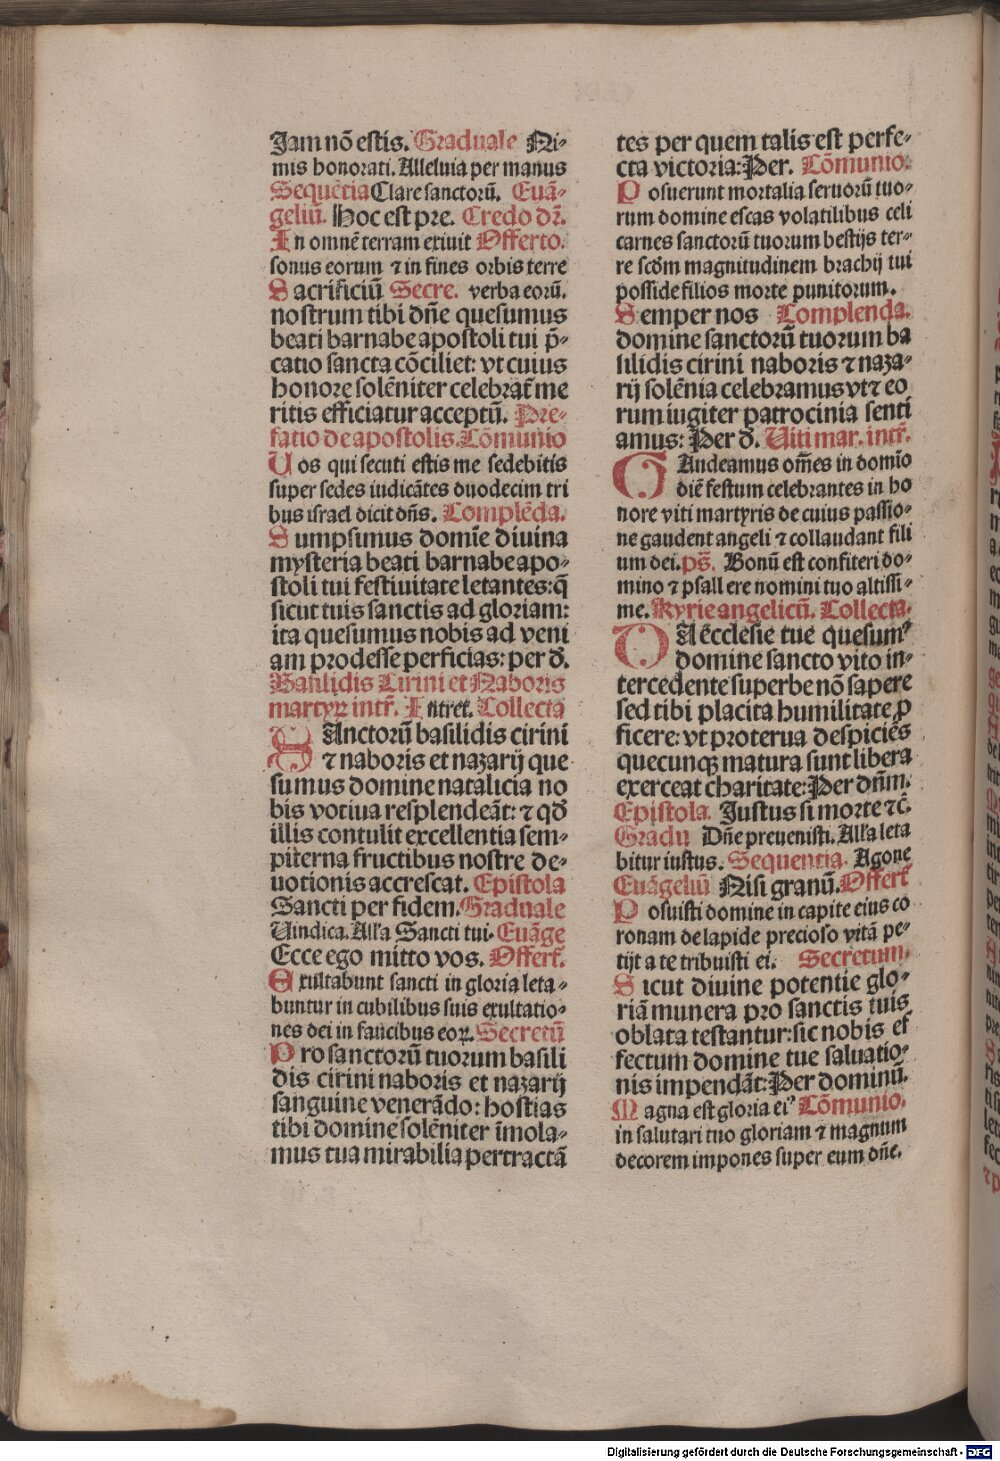 Jam nō estis. Graduale Ni-
mis honorati. Alleluia per manus
Sequētia Clare sanctorū. Euā-
geliū. Hoc est pre. Credo dr̄.
In omnē terram exiuit Offerto.
sonus eorum ⁊ in fines orbis terre
Sacrificiū Secre. verba eorū.
nostrum tibi dn̄e quesumus
beati barnabe apostoli tui p̄-
catio sancta cōciliet: vt cuius
honore solēniter celebrat̄ me
ritis efficiatur acceptū. Pre-
fatio de apostolis. Cōmunio
Uos qui secuti estis me sedebitis
super sedes iudicātes duodecim tri
bus israel dicit dn̄s. Complēda.
Sumpsimus domīe diuina
mysteria beati barnabe apo-
stoli tui festiuitate letantes: q̄
sicut tuis sanctis ad gloriam:
ita quesumus nobis ad veni
am prodesse perficias: per d̄.
Basilidis Cirini et Naboris
martyrꝝ intr̄. Intret. Collecta
SAnctorū basilidis cirini
⁊ naboris et nazarij que
sumus domine natalicia no
bis votiua resplendeāt: ⁊ qd̄
illis contulit excellentia sem-
piterna fructibus nostre de-
uotionis accrescat. Epistola
Sancti per fidem. Graduale
Uindica. Alľa Sancti tui. Euāge
Ecce ego mitto vos. Offert̄.
Exultabunt sancti in gloria leta-
buntur in cubilibus suis exultatio-
nes dei in faucibus eoꝝ. Secretū
Pro sanctorū tuorum basili
dis cirini naboris et nazarij
sanguine venerādo: hostias
tibi domine solēniter īmola-
mus tua mirabilia pertractā
tes per quem talis est perfe-
cta victoria: Per. Cōmunio.
Posuerunt mortalia seruorū tuo-
rum domine escas volatilibus celi
carnes sanctorū tuorum bestijs ter-
re scd̄m magnitudinem brachij tui
posside filios morte punitorum.
Semper nos Complenda.
domine sanctorū tuorum ba
silidis cirini naboris ⁊ naza-
rij solēnia celebramus vt ⁊ eo
rum iugiter patrocinia senti
amus: Per d̄. Uiti mar. intr̄.
GAudeamus om̄es in domīo
diē festum celebrantes in ho
nore viti martyris de cuius passio-
ne gaudent angeli ⁊ collaudant fili
um dei. ps̄. Bonū est confiteri do-
mino ⁊ psallere nomini tuo altissi-
me. Kyrie angelicū. Collecta.
DA ecclesie tue quesumꝰ
domine sancto vito in-
tercedente superbe nō sapere
sed tibi placita humilitate ꝓ
ficere: vt proterua despiciēs
quecunqꝫ matura sunt libera
exerceat charitate: Per dn̄m.
Epistola. Justus si morte ⁊c̄.
Gradu Dn̄e preuenisti. Alľa leta
bitur iustus. Sequentia. Agone
Euāgeliū Nisi granū. Offert̄
Posuisti domine in capite eius co
ronam de lapide precioso vitā pe-
tijt a te tribuisti ei. Secretum.
Sicut diuine potentie glo-
riā munera pro sanctis tuis
oblata testantur: sic nobis ef
fectum domine tue saluatio-
nis impendāt: Per dominū.
Magna est gloria eiꝰ Cōmunio.
in salutari tuo gloriam ⁊ magnum
decorem impones super eum dn̄e.
Digitalisierung gefördert durch die Deutsche Forschungsgemeinschaft - DFG